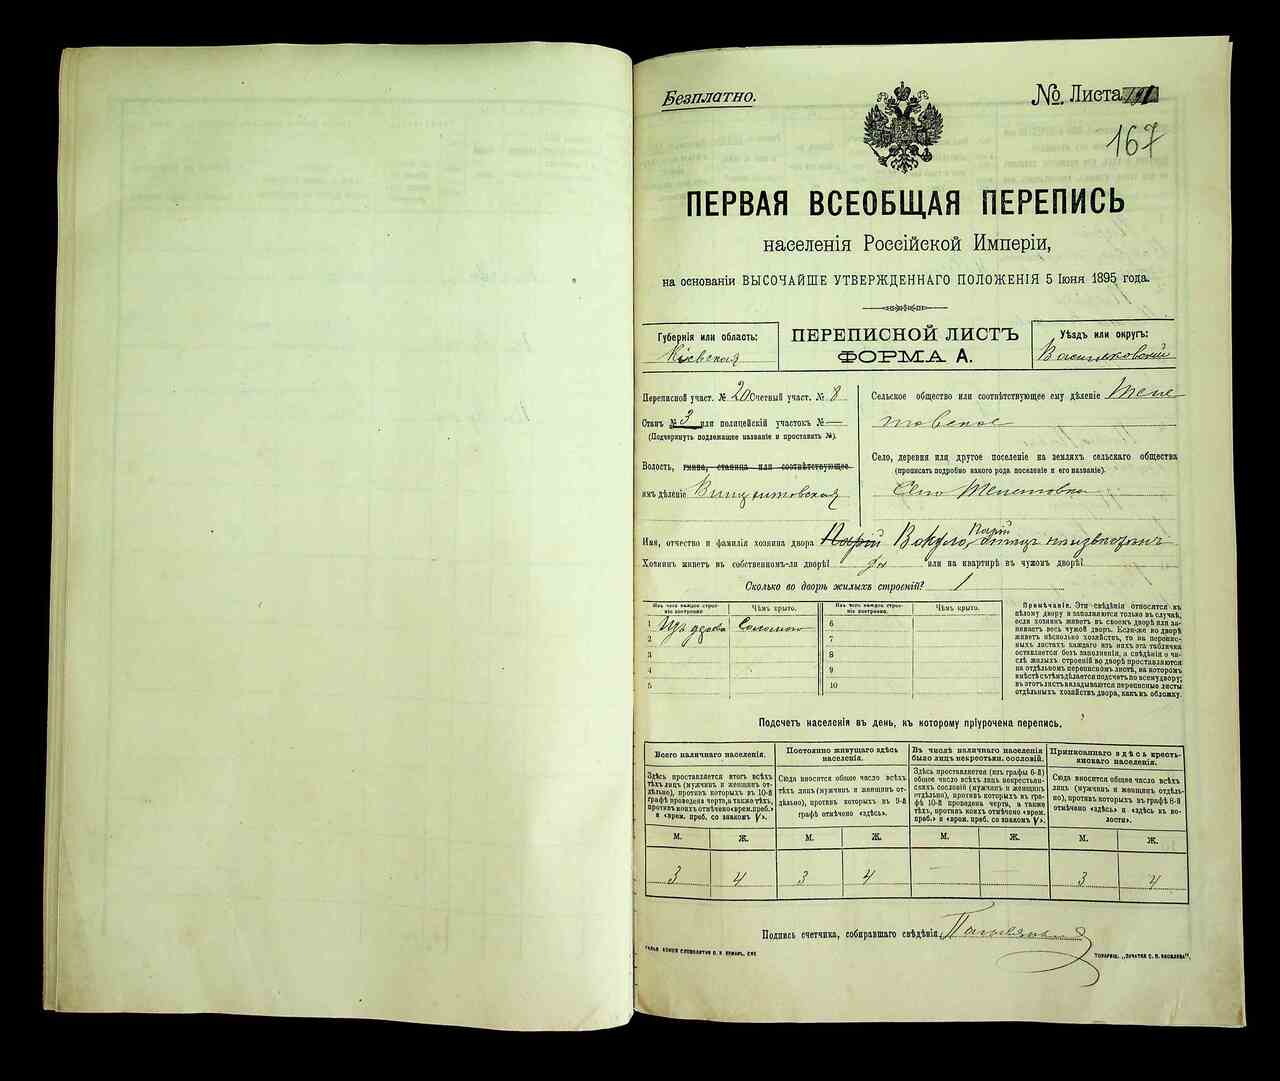 Безплатно.
№. Листа
167
ПЕРВАЯ ВСЕОБЩАЯ ПЕРЕПИСЬ
населенія Россійской Имперіи,
на основаніи ВЫСОЧАЙШЕ УТВЕРЖДЕННАГО ПОЛОЖЕНІЯ 5 Іюня 1895 года.
Губернія или область:
Кіевская
ПЕРЕПИСНОЙ ЛИСТЪ
ФОРМА А.
Уѣздъ или округъ:
Васильковскій
Переписной участ. № 20 Счетный участ. № 8
Станъ № 3 или полицейскій участокъ № —
(Подчеркнуть подлежащее названіе и проставить №).
Волость, гмина, станица или соотвѣтствующее
имъ дѣленіе
Сельское общество или соотвѣтствующее ему дѣленіе Теле
товское
Село, деревня или другое поселеніе на земляхъ сельскаго общества
(прописать подробно какого рода поселеніе и его названіе).
Село
Имя, отчество и фамилія хозяина двора Парій Вакуло Парій
Хозяинъ живетъ въ собственномъ-ли дворѣ? да или на квартирѣ въ чужомъ дворѣ?
Сколько во дворѣ жилыхъ строеній? 1
Изъ чего каждое строе-
ніе построено.
Чѣмъ крыто.
Изъ чего каждое строе-
ніе построено.
Чѣмъ крыто.
1 Изъ дерева Соломою 6
2 7
3 8
4 9
5 10
Примѣчаніе. Эти свѣдѣнія относятся къ
цѣлому двору и заполняются только въ случаѣ,
если хозяинъ живетъ въ своемъ дворѣ или за-
нимаетъ весь чужой дворъ. Если-же во дворѣ
живетъ нѣсколько хозяйствъ, то на перепис-
ныхъ листахъ каждаго изъ нихъ эта табличка
оставляется безъ заполненія, а свѣдѣнія о чи-
слѣ жилыхъ строеній во дворѣ проставляются
на отдѣльномъ переписномъ листѣ, на которомъ
вмѣстѣ съ тѣмъ дѣлается подсчетъ по всему двору;
въ этотъ листъ вкладываются переписные листы
отдѣльныхъ хозяйствъ двора, какъ въ обложку.
Подсчетъ населенія въ день, къ которому пріурочена перепись.
Всего наличнаго населенія.
Здѣсь проставляется итогъ всѣхъ
тѣхъ лицъ (мужчинъ и женщинъ от-
дѣльно), противъ которыхъ въ 10-й
графѣ проведена черта, а также тѣхъ,
противъ коихъ отмѣчено «врем. преб.»
и «врем. преб. со знакомъ V».
Постоянно живущаго здѣсь
населенія.
Сюда вносится общее число всѣхъ
тѣхъ лицъ (мужчинъ и женщинъ от-
дѣльно), противъ которыхъ въ 9-й
графѣ отмѣчено «здѣсь».
Въ числѣ наличнаго населенія
было лицъ некрестьян. сословій.
Здѣсь проставляется (изъ графы 6-й)
общее число всѣхъ лицъ некрестьян-
скихъ сословій (мужчинъ и женщинъ
отдѣльно), противъ которыхъ въ гра-
фѣ 10-й проведена черта, а также
тѣхъ, противъ коихъ отмѣчено «врем.
преб.» и «врем. преб. со знакомъ V».
Приписаннаго здѣсь кресть-
янскаго населенія.
Сюда вносится общее число всѣхъ
лицъ (мужчинъ и женщинъ отдѣль-
но), противъ которыхъ въ графѣ 8-й
отмѣчено «здѣсь» и «здѣсь въ во-
лости».
М. Ж. М. Ж. М. Ж. М. Ж.
3 4 3 4 — — 3 4
Подпись счетчика, собиравшаго свѣдѣнія
ТОВАРИЩ. „ПЕЧАТНЯ С. П. ЯКОВЛЕВА".